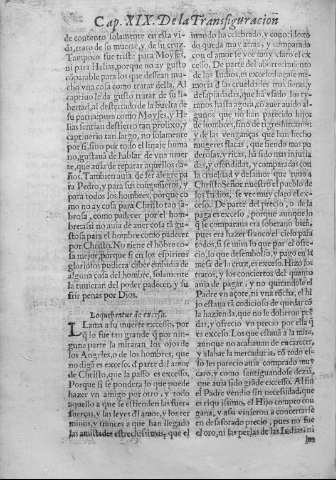 Cap. XIX. De la Transfiguracion
de contento solamente en esta vi-
da, trato de su muerte, y de su cruz.
Tampoco fue triste para Moyses,
ni para Helias, porque no ay gusto
cõparable para los que dessean mu-
cho vna cosa como tratar della. Al
captiuo le da gusto tratar de su li-
bertad, al desterrado de la buelta de
su patria
captiuerio tan largo, no solamente
por si, sino por todo el linaje huma
no, gustauã de hablar de vna muer
te, que auia de reparar
ños. Tambien auia de ser alegre pa
ra Pedro, y para sus compañeros, y
para todos los hombres, porque co
mo no ay cosa para Christo tan sa-
brosa, como padecer por el hom-
bre: assi no auia de auer cosa tã gu-
stosa para el hombre como padecer
por Christo. No tiene el hõbre co-
sa mejor, porque si en los espiritus
gloriosos pudiera caber embidia de
alguna cosa del hombre, solamente
la tuuieran del poder padecer, y su
frir penas por Dios.
Loquebantur de excessu.
LLama a su muerte excesso, por
q̃ lo fue tan grande q̃ por nin-
guna parte la miraran los ojos de
los Angeles, o de los hombres, que
no diga es excesso. de parte del amor
de Christo, que la passo es excesso.
Porque si se pondera lo que puede
hazer vn amigo por otro, y todo
aquello a que se estienden las fuer-
fuerças, y las leyes del amor, y los ter
minos, y trances a que han llegado
las amistades estrechissimas, que el
mundo ha celebrado, y conocido: to
do queda muy atras, y comparado
con el amor se vee muy claro el ex-
cesso. De parte del aborrecimien-
to de los Iudios, es excesso
moria de las crueldades
desapiadadas, que ha
ranos hasta agora,
gunos que no han parecido hijos
de hombres, sino de tigres
y de las venganças que han hecho
mugeres flacas, que siendo mas po
derosas, y ricas, hã sido mas injuria
das, y ofendidas, y comparadas con
la crueldad, y desamor que vsaua a
Christo Señor nuestro el pueblo de
los Iudios, se vee muy claro el ex-
cesso. De parte del precio, o de la
paga es excesso, porque aunque lo
q̃ se compraua era soberano bien,
pues era hazer franco el cielo para
todos, si se mira lo que por el ofre-
cio, lo que desembolso, y pago en la
mesa de la cruz, es excesso. Hizo los
tratos, y los conciertos del quanto
auia de pagar, y no quiriendole el
Padre vn açote, ni vna hecha, el hi-
jo estaua tã codicioso de quedar cõ
la hazienda, que no le dolieron per-
der, y ofrecio vn precio por ella q̃
es excesso. Los que estauã a la mira,
aunque no acabauan de encarecer,
y alabar la mercaduria, cõ todo es-
so les parecia auia comprado muy
caro, y como santiguandose deziã,
que auia sido grãde excesso. Assi en
el Padre vendio sin necessidad, que
es riquissimo, el Hijo compro con
gana, y assi vinieron a concertarse
en desaforado precio, pues no fue
el oro, ni las perlas de las Indias, ni